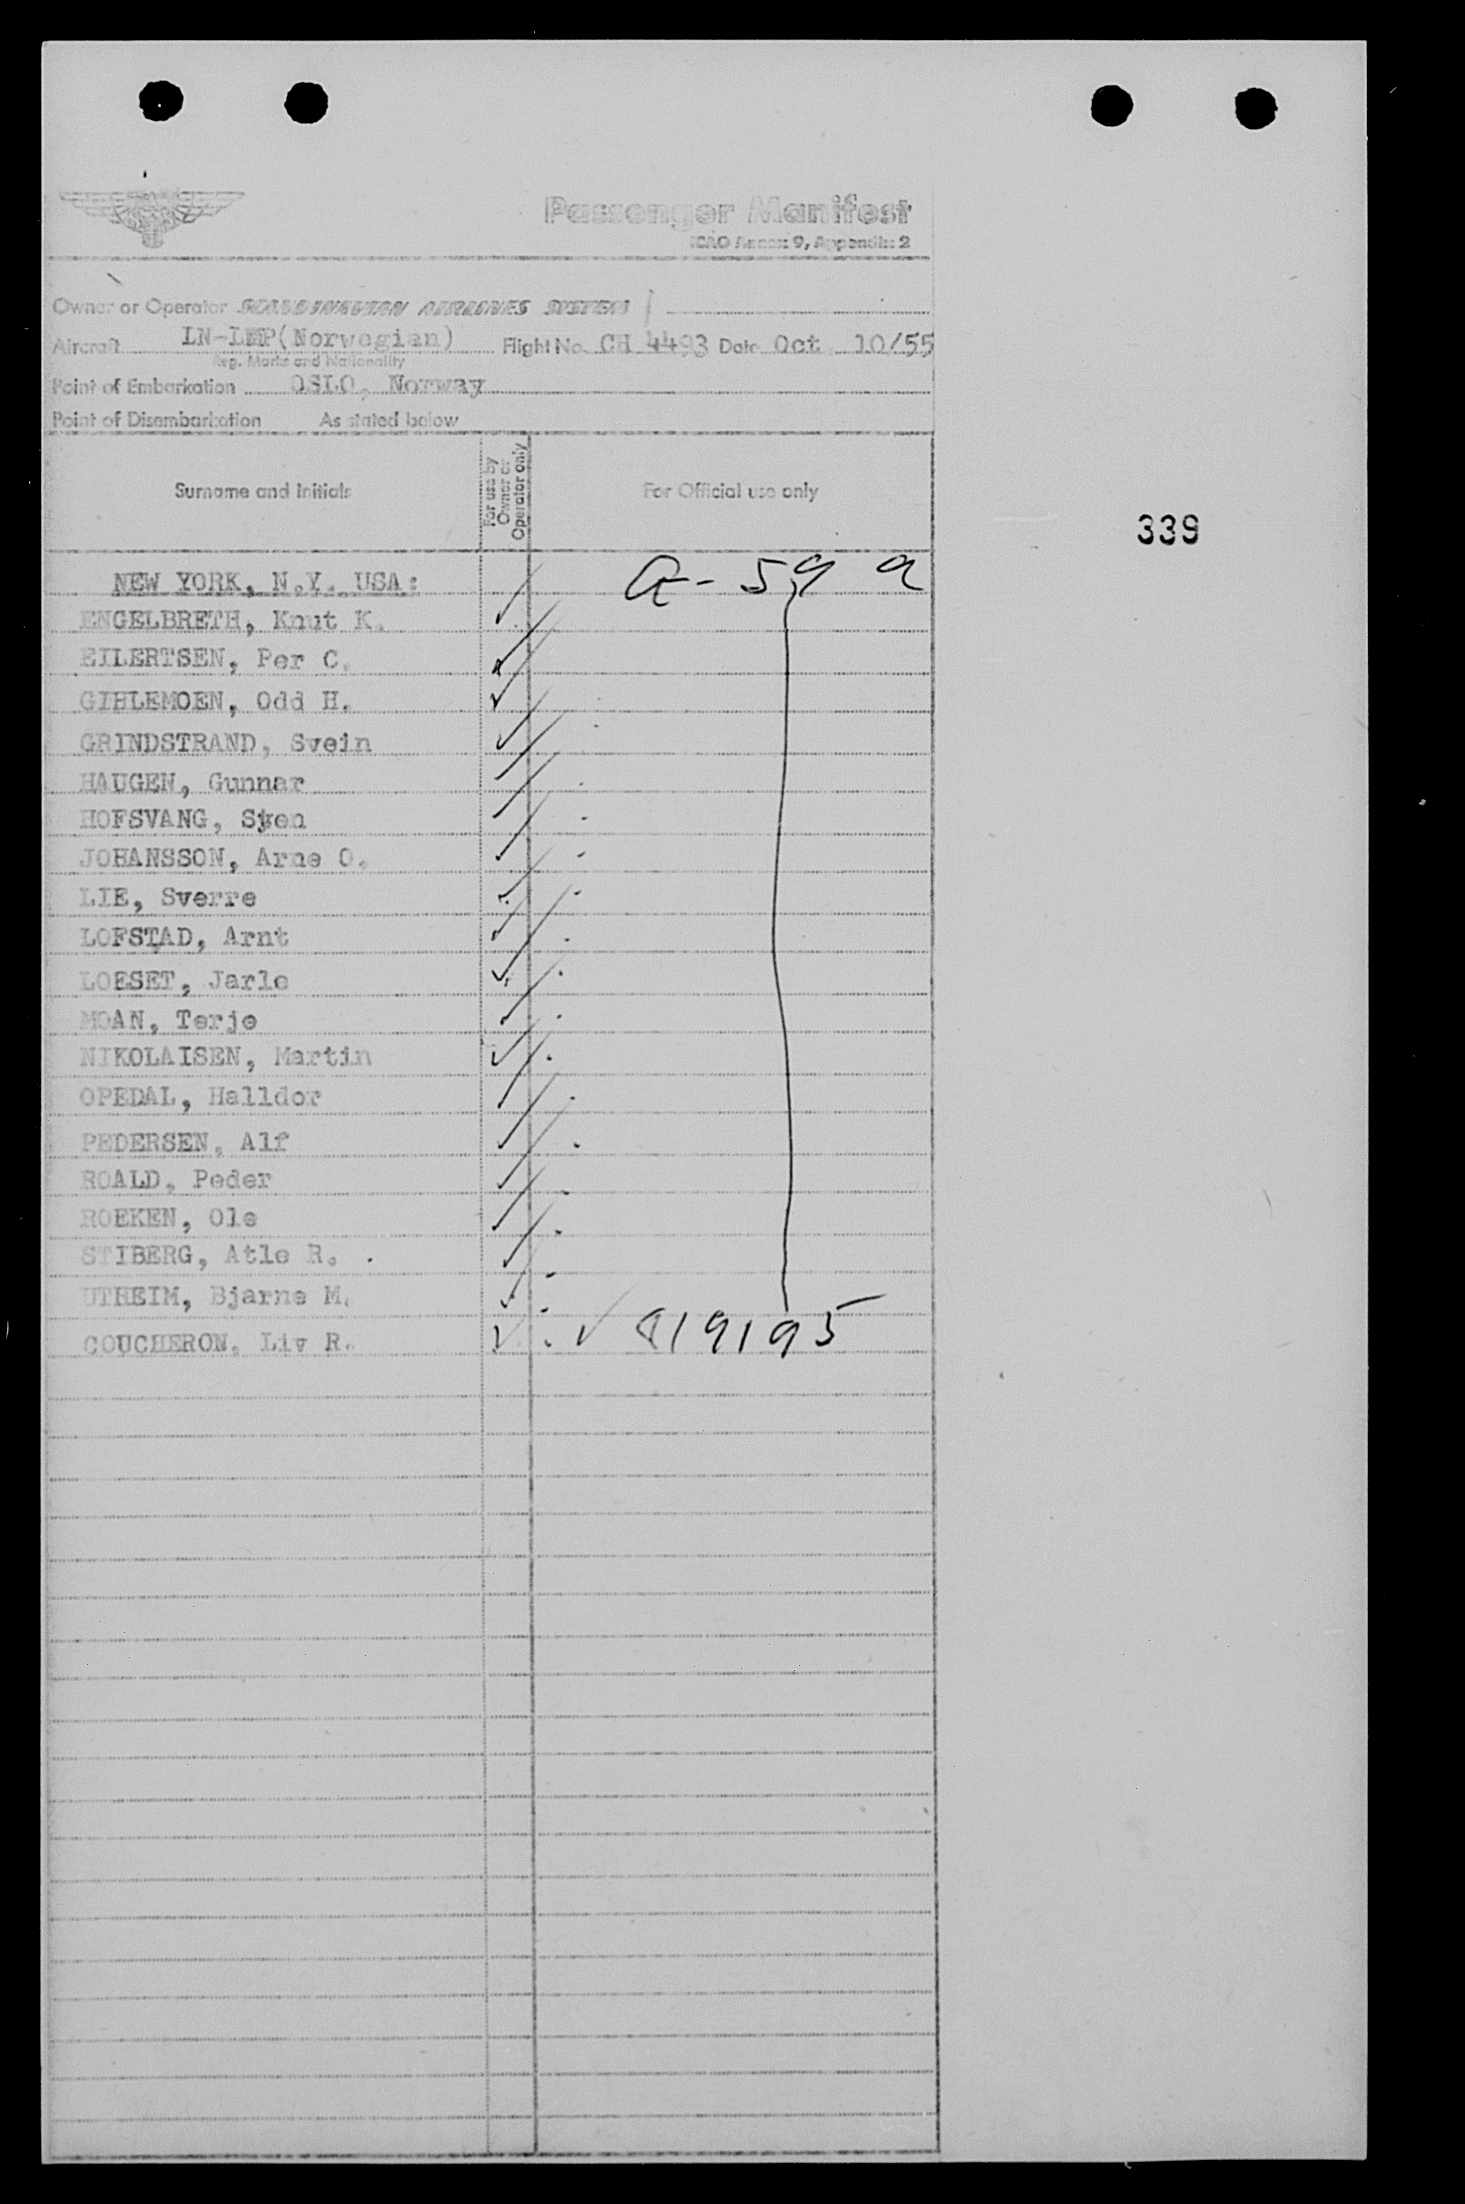 Passenger Manifest
ICAO Annex 9, Appendix 2
Owner or Operator SCANDINAVIAN AIRLINES SYSTEM
Aircraft LN-LMP(Norwegian) Flight No. CH 4493 Date Oct 10/55
Reg. Marks and Nationality
Point of Embarkation OSLO, Norway
Point of Disembarkation As stated below
Surname and Initials
For use by Owner or Operator only
For Official use only
339
NEW YORK, N.Y. USA: a- 59 a
ENGELBRETH, Knut K.
EILERTSEN, Per C.
GIHLEMOEN, Odd H.
GRINDSTRAND, Svein
HAUGEN, Gunnar
HOFSVANG, Sven
JOHANSSON, Arne O.
LIE, Sverre
LOFSTAD, Arnt
LOESET, Jarle
MOAN, Terje
NIKOLAISEN, Martin
OPEDAL, Halldor
PEDERSEN, Alf
ROALD, Peder
ROEKEN, Ole
STIBERG, Atle R.
UTHEIM, Bjarne M.
COUCHERON, Liv R. 819195